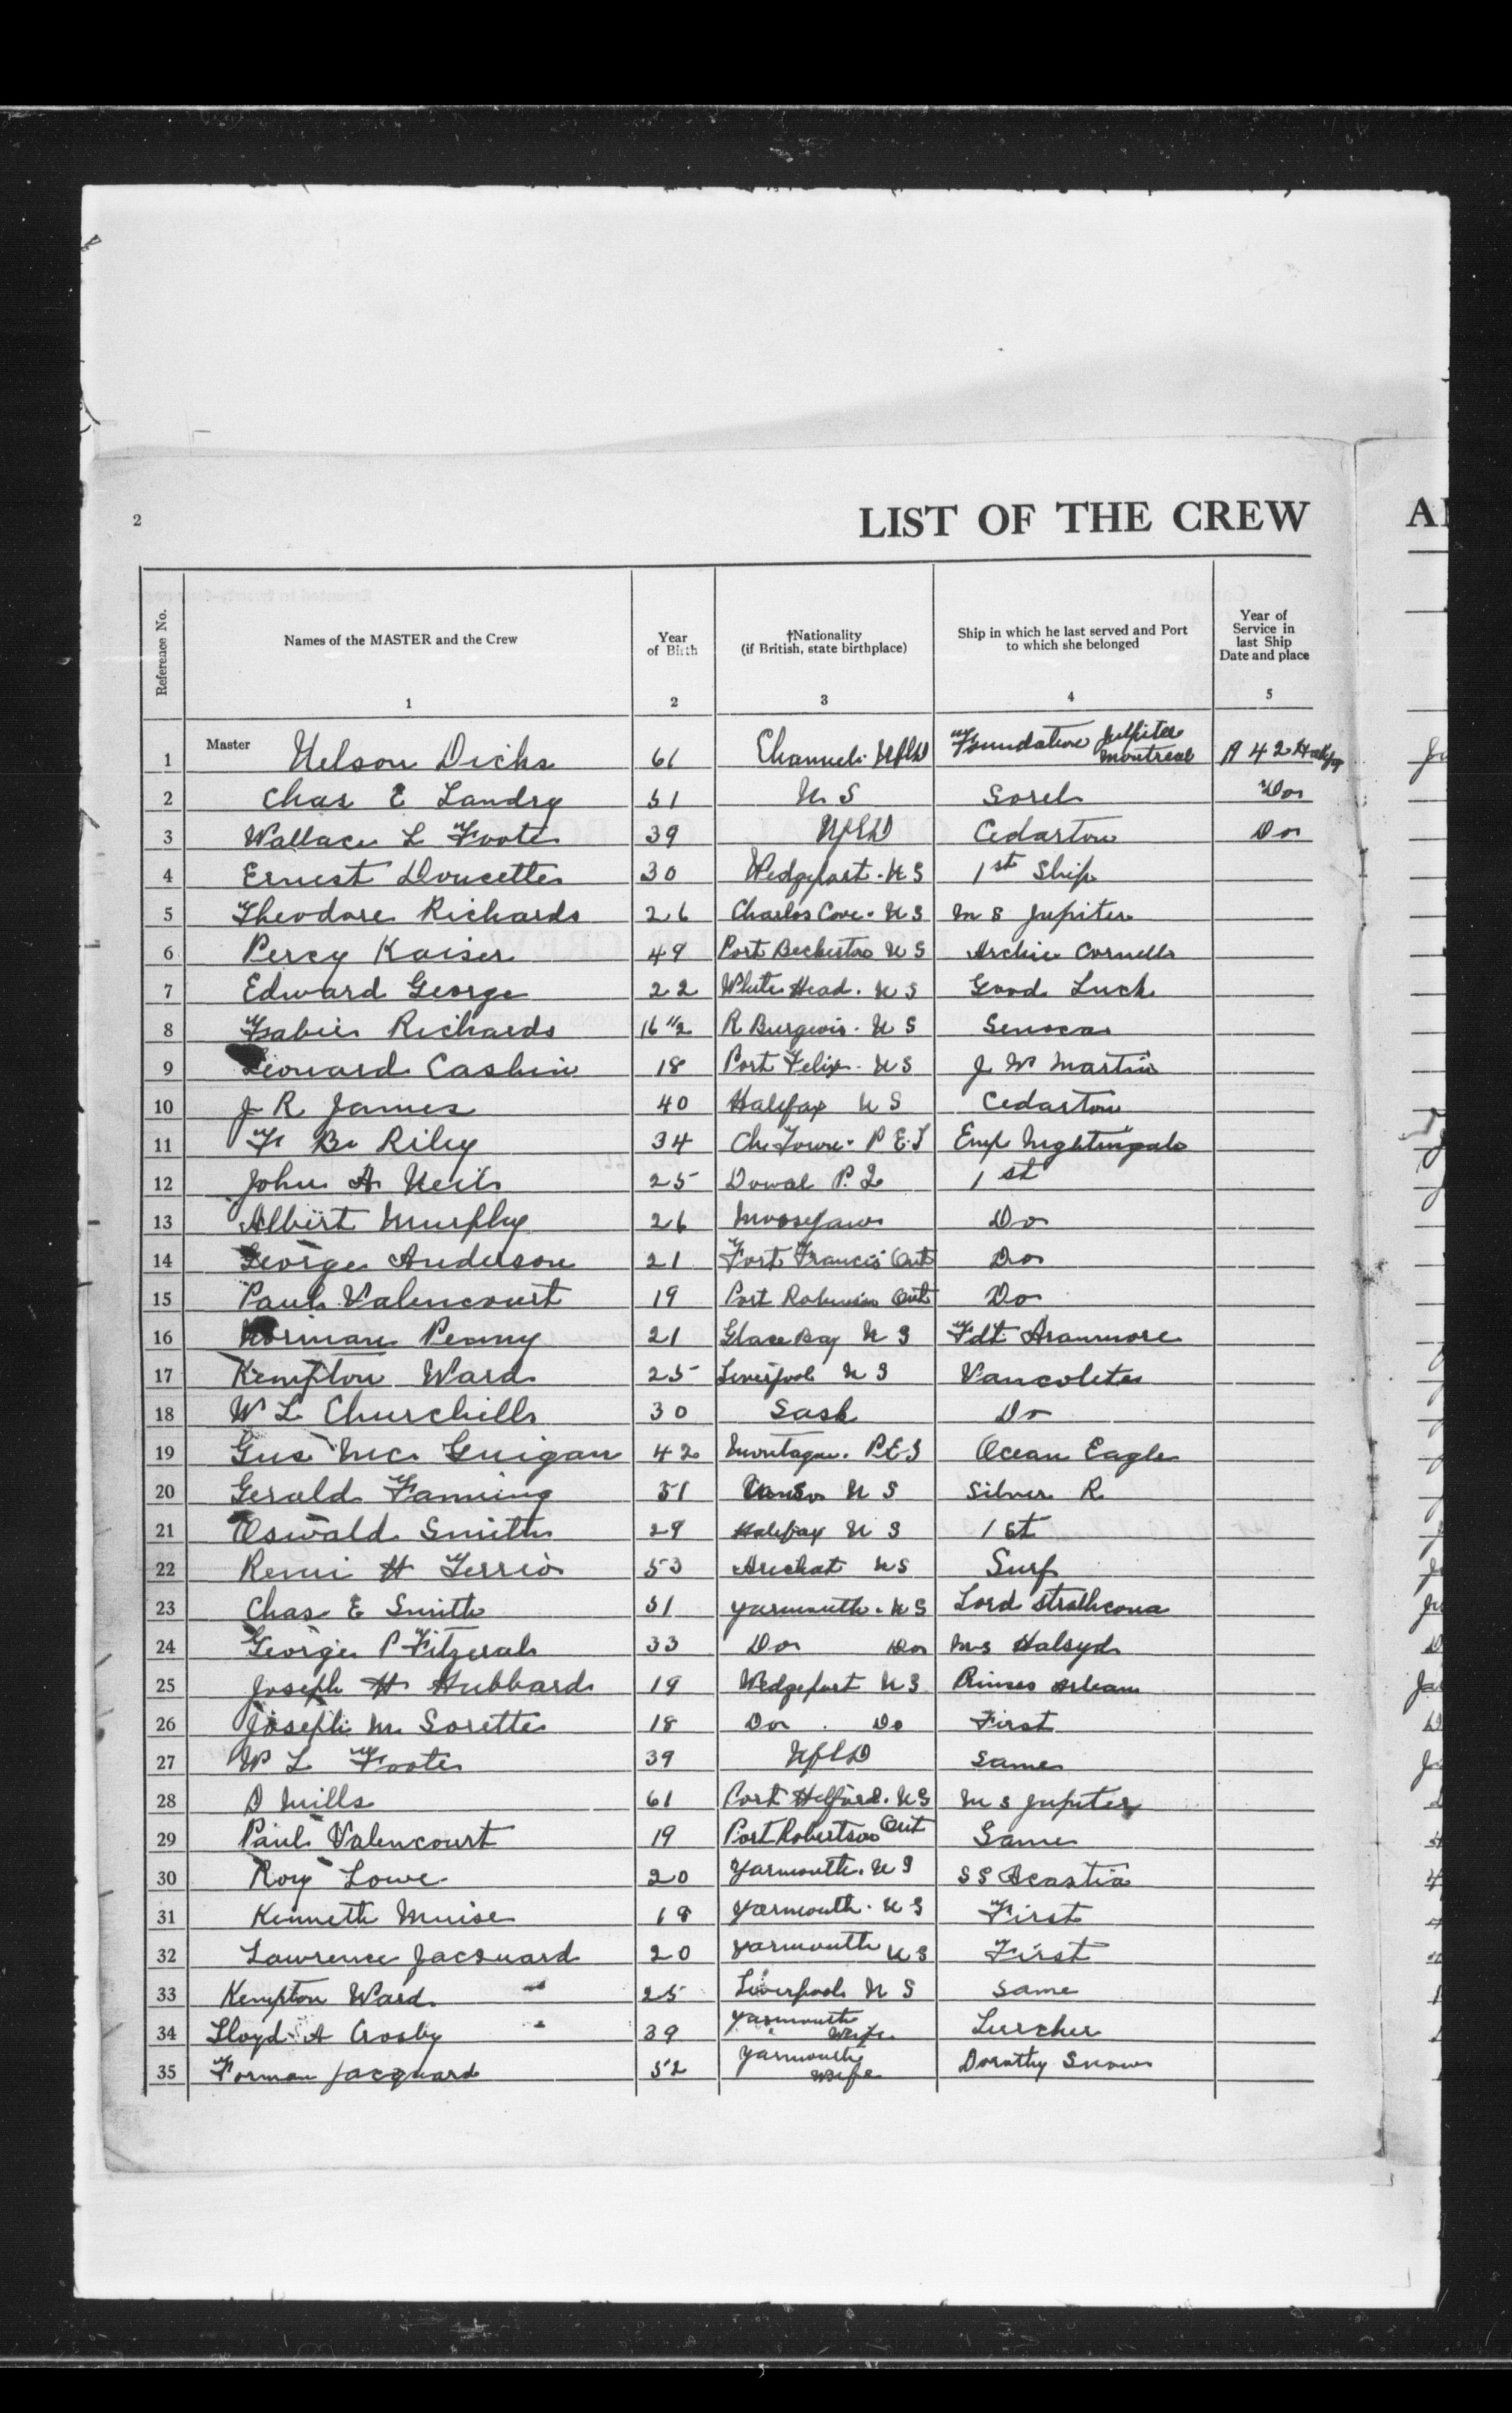 2
LIST OF THE CREW
Reference No.
Names of the MASTER and the Crew
Year of Birth
†Nationality (if British, state birthplace)
Ship in which he last served and Port to which she belonged
Year of Service in last Ship Date and place
1 2 3 4 5
1 Master Nelson Dicks 61 Channel. NFLD Foundation Jupiter Montreal A 42 Halifax
2 Chas E Landry 51 N. S Sorel Do
3 Wallace L Foote 39 NFLD Cedarton Do
4 Ernest Doucette 30 Wedgeport. N S 1st Ship
5 Theodore Richards 26 Charlos Cove. N S M S Jupiter
6 Percy Kaiser 49 Port N S Archie Cornell
7 Edward George 22 White Head. N S Good Luck
8 Richards 16 1/2 R Burgeois. N S Senoca
9 Leonard Cashin 18 Port Felix. N S J W Martin
10 J R James 40 Halifax N S Cedarton
11 F B Riley 34 Ch Town. P E I Emp Nightingale
12 John A Neil 25 P. 1 st
13 Albert Murphy 26 Moosejaw Do
14 George Anderson 21 Fort Francis Ont Do
15 Paul Valencourt 19 Port Robinson Ont Do
16 Norman Penny 21 Glace Bay N S Fdt. Aranmore
17 Kempton Ward 25 Liverpool N S Vancolite
18 W L Churchill 30 Sask Do
19 Gus Mc Guigan 42 Montague. P E I Ocean Eagle
20 Gerald Fanning 51 Canso N S Silver R
21 Oswald Smith 29 Halifax N S 1 st
22 Remi H Terrio 53 Arichat N S Surf
23 Chas E Smith 51 Yarmouth. N S Lord Strathcona
24 George P Fitzerald 33 Do Do M S Halsyd
25 Joseph H Hubbard 19 Wedgeport N S Princes
26 Joseph M Sorette 18 Do . Do First
27 W L Foote 39 NFLD Same
28 D Mills 61 Port N S M S Jupiter
29 Paul Valencourt 19 Port Robertson Ont Same
30 Roy Lowe 20 Yarmouth. N S S S
31 Kenneth Muise 18 Yarmouth. N S First
32 Lawrence Jacquard 20 Yarmouth N S First
33 Kempton Ward 25 Liverpool N S Same
34 Lloyd A Crosby 39 Yarmouth Wife Lurcher
35 Forman Jacquard 52 Yarmouth Wife Dorothy Snow